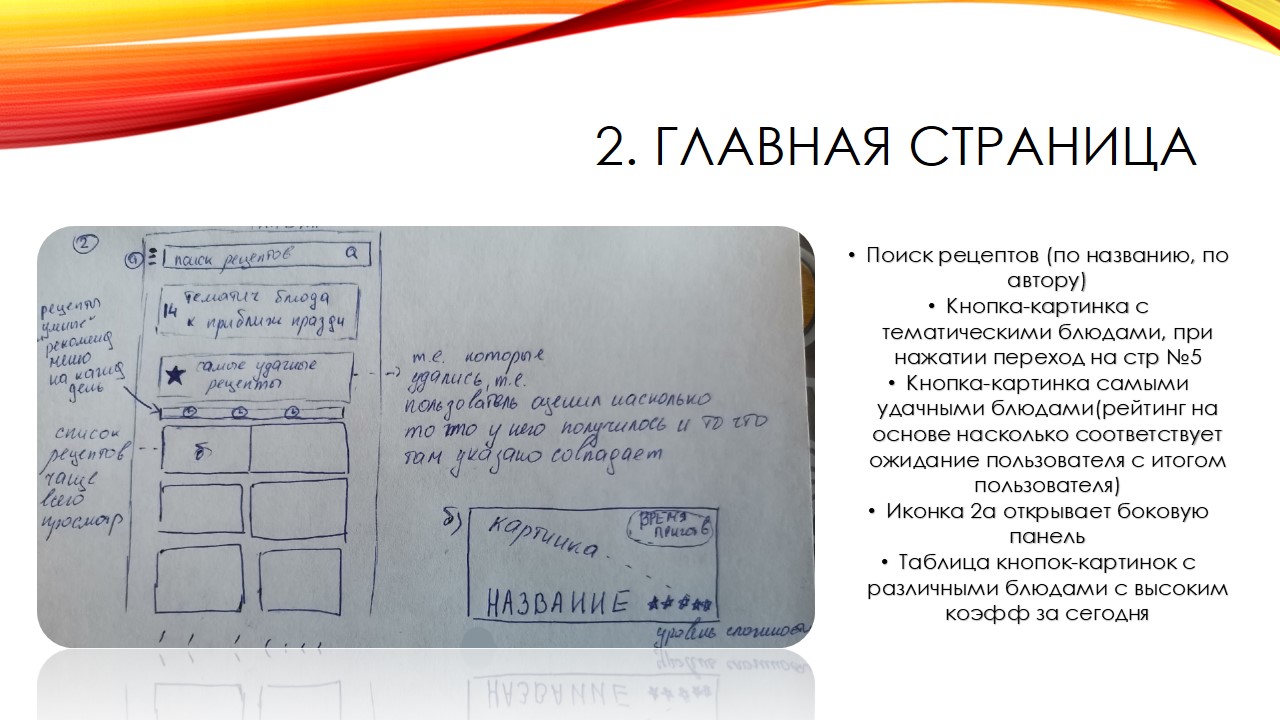 2. ГЛАВНАЯ СТРАНИЦА
2
а
поиск рецептов
14 тематич блюда
к приближ праздн
рецепты
умные
рекоменд
меню
на кажд
день
самые удачные
рецепты
т.е. которые
удались, т.е.
пользователь оценил насколько
то что у него получилось и то что
там указано совпадает
список
рецептов
чаще
всего
просмотр
б
б)
картинка
ВРЕМЯ
ПРИГОТОВ
НАЗВАНИЕ
уровень сложности
• Поиск рецептов (по названию, по
автору)
• Кнопка-картинка с
тематическими блюдами, при
нажатии переход на стр №5
• Кнопка-картинка самыми
удачными блюдами(рейтинг на
основе насколько соответствует
ожидание пользователя с итогом
пользователя)
• Иконка 2а открывает боковую
панель
• Таблица кнопок-картинок с
различными блюдами с высоким
коэфф за сегодня